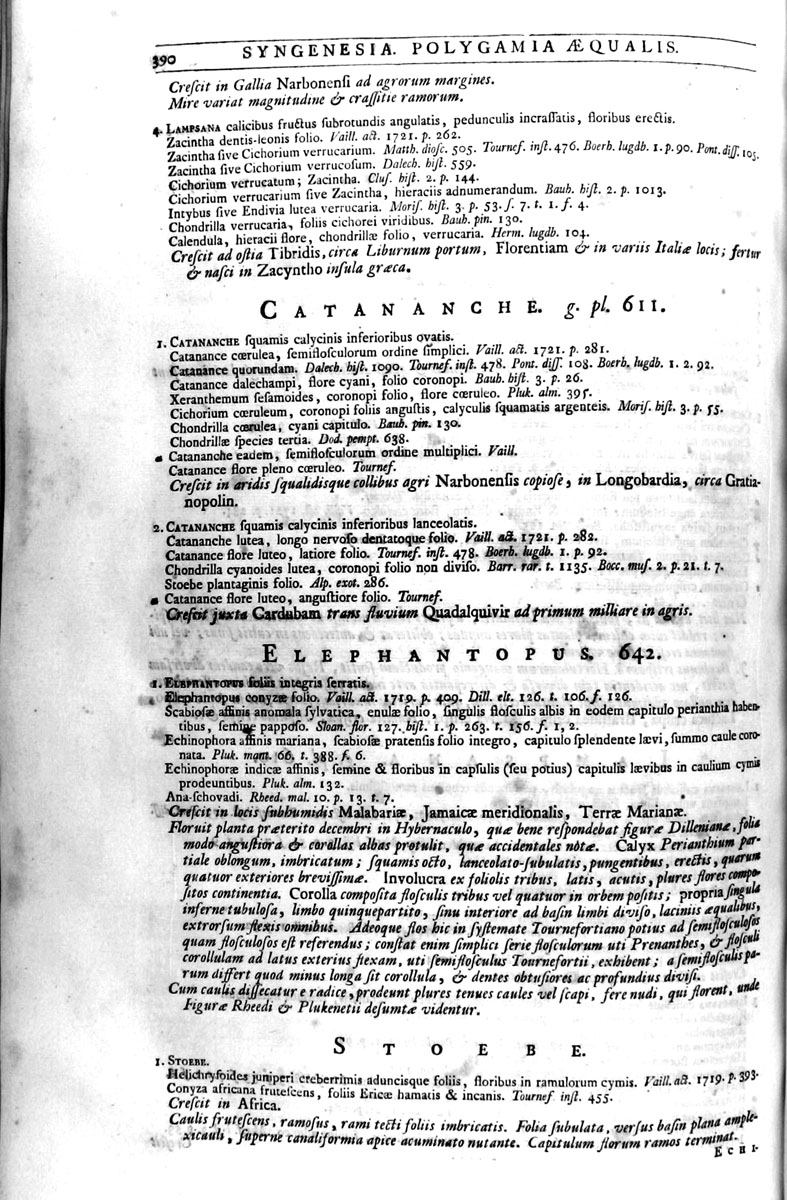 390 SYNGENESIA. POLYGAMIA ÆQUALIS.
Creſcit in Gallia Narbonenſi ad agrorum margines.
Mire variat magnitudine & craſſitie ramorum.
4. LAMPSANA calicibus fructus ſubrotundis angulatis, pedunculis incraſſatis, floribus erectis.
Zacintha dentis-leonis folio. Vaill. act. 1721. p. 262.
Zacintha ſive Cichorium verrucarium. Matth. dioſc. 505. Tournef. inſt. 476. Boerh. lugdb. 1. p. 90. Pont. diſſ. 105.
Zacintha ſive Cichorium verrucoſum. Dalech. hiſt. 559.
Cichorium verrucatum; Zacintha. Cluſ. hiſt. 2. p. 144.
Cichorium verrucarium ſive Zacintha, hieraciis adnumerandum. Bauh. hiſt. 2. p. 1013.
Intybus ſive Endivia lutea verrucaria. Moriſ. hiſt. 3. p. 53. ſ. 7. t. 1. f. 4.
Chondrilla verrucaria, foliis cichorei viridibus. Bauh. pin. 130.
Calendula, hieracii flore, chondrillæ folio, verrucaria. Herm. lugdb. 104.
Creſcit ad oſtia Tibridis, circa Liburnum portum, Florentiam & in variis Italiæ locis; fertur
& naſci in Zacyntho inſula græca.
CATANANCHE. g. pl. 611.
1. CATANANCHE ſquamis calycinis inferioribus ovatis.
Catanance cœrulea, ſemifloſculorum ordine ſimplici. Vaill. act. 1721. p. 281.
Catanance quorundam. Dalech. hiſt. 1090. Tournef. inſt. 478. Pont. diſſ. 108. Boerh. lugdb. 1. 2. 92.
Catanance dalechampi, flore cyani, folio coronopi. Bauh. hiſt. 3. p. 26.
Xeranthemum ſeſamoides, coronopi folio, flore cœruleo. Pluk. alm. 395.
Cichorium cœruleum, coronopi foliis anguſtis, calyculis ſquamatis argenteis. Moriſ. hiſt. 3. p. 55.
Chondrilla cœrulea, cyani capitulo. Bauh. pin. 130.
Chondrillæ ſpecies tertia. Dod. pempt. 638.
Catananche eadem, ſemifloſculorum ordine multiplici. Vaill.
Catanance flore pleno cœruleo. Tournef.
Creſcit in aridis ſqualidisque collibus agri Narbonenſis copioſe, in Longobardia, circa Gratia-
nopolin.
2. CATANANCHE ſquamis calycinis inferioribus lanceolatis.
Catananche lutea, longo nervoſo dentatoque folio. Vaill. act. 1721. p. 282.
Catanance flore luteo, latiore folio. Tournef. inſt. 478. Boerh. lugdb. 1. p. 92.
Chondrilla cyanoides lutea, coronopi folio non diviſo. Barr. rar. t. 1135. Bocc. muſ. 2. p. 21. t. 7.
Stoebe plantaginis folio. Alp. exot. 286.
Catanance flore luteo, anguſtiore folio. Tournef.
Creſcit juxta Cardubam trans fluvium Quadalquivir ad primum milliare in agris.
ELEPHANTOPUS. 642.
1. ELEPHANTOPUS foliis integris ſerratis.
Elephantopus conyzæ folio. Vaill. act. 1719. p. 409. Dill. elt. 126. t. 106. f. 126.
Scabioſæ affinis anomala ſylvatica, enulæ folio, ſingulis floſculis albis in eodem capitulo perianthia haben-
tibus, ſemine pappoſo. Sloan. flor. 127. hiſt. 1. p. 263. t. 156. f. 1, 2.
Echinophora affinis mariana, ſcabioſæ pratenſis folio integro, capitulo ſplendente lævi, ſummo caule coro-
nata. Pluk. mant. 66. t. 388. f. 6.
Echinophoræ indicæ affinis, ſemine & floribus in capſulis (ſeu potius) capitulis lævibus in caulium cymis
prodeuntibus. Pluk. alm. 132.
Ana-ſchovadi. Rheed. mal. 10. p. 13. t. 7.
Creſcit in locis ſubhumidis Malabariæ, Jamaicæ meridionalis, Terræ Marianæ.
Floruit planta præterito decembri in Hybernaculo, quæ bene reſpondebat figuræ Dillenianæ, folia
modo anguſtiora & corollas albas protulit, quæ accidentales nôtæ. Calyx Perianthium par-
tiale oblongum, imbricatum; ſquamis octo, lanceolato-ſubulatis, pungentibus, erectis, quarum
quatuor exteriores breviſſimæ. Involucra ex foliolis tribus, latis, acutis, plures flores compo-
ſitos continentia. Corolla compoſita floſculis tribus vel quatuor in orbem poſitis; propria ſingula
inferne tubuloſa, limbo quinquepartito, ſinu interiore ad baſin limbi diviſo, laciniis æqualibus,
extrorſum flexis omnibus. Adeoque flos hic in ſyſtemate Tournefortiano potius ad ſemifloſculoſos
quam floſculoſos eſt referendus; conſtat enim ſimplici ſerie floſculorum uti Prenanthes, & floſculi
corollulam ad latus exterius flexam, uti ſemifloſculus Tournefortii, exhibent; a ſemifloſculis pa-
rum differt quod minus longa ſit corollula, & dentes obtuſiores ac profundius diviſi.
Cum caulis diſſecatur e radice, prodeunt plures tenues caules vel ſcapi, fere nudi, qui florent, unde
Figuræ Rheedi & Plukenetii deſumtæ videntur.
STOEBE.
1. STOEBE.
Helichryſoides juniperi creberrimis aduncisque foliis, floribus in ramulorum cymis. Vaill. act. 1719. p. 393.
Conyza africana fruteſcens, foliis Ericæ hamatis & incanis. Tournef. inſt. 455.
Creſcit in Africa.
Caulis fruteſcens, ramoſus, rami tecti foliis imbricatis. Folia ſubulata, verſus baſin plana ample-
xicauli, ſuperne canaliformia apice acuminato nutante. Capitulum florum ramos terminat.
ECHI-